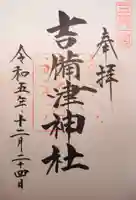 奉拝
吉備津神社
令和五年十二月二十四日